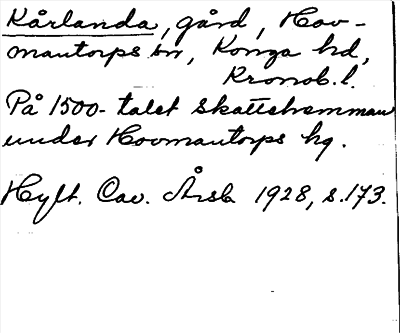 Kårlanda, gård, Hov-
mantorps sn, Konga hd,
Kronob. l.
På 1500-talet skattehemman
under Hovmantorps hg.
Hylt. Cav. Årsb 1928, s. 173.